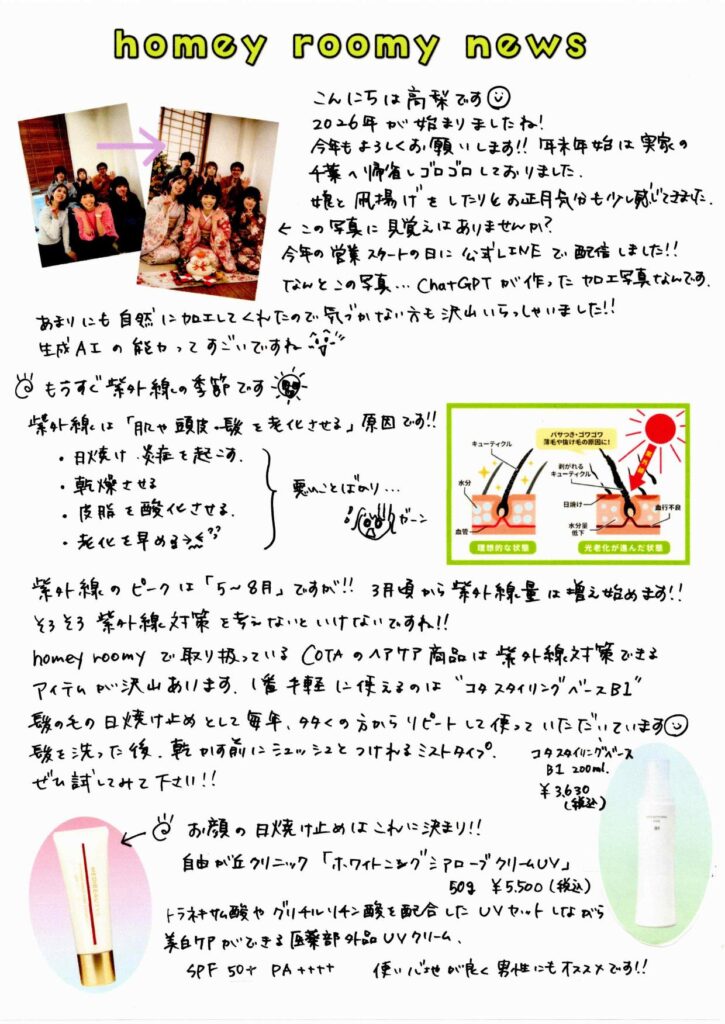 homey roomy news
こんにちは高梨です
2026年が始まりましたね!
今年もよろしくお願いします!! 年末年始は実家の
千葉へ帰省しゴロゴロしておりました.
娘と凧揚げをしたりとお正月気分も少し感じてきました.
← この写真に見覚えはありませんか?
今年の営業スタートの日に公式LINEで配信しました!!
なんとこの写真… ChatGPTが作った加工写真なんです.
あまりにも自然に加工してくれたので気づかない方も沢山いらっしゃいました!!
生成AIの能力ってすごいですね
もうすぐ紫外線の季節です
紫外線は「肌や頭皮、髪を老化させる」原因です!!
・日焼け 炎症を起こす.
・乾燥させる
・皮脂を酸化させる.
・老化を早める
悪いことばかり…
ガーン
パサつき・ゴワゴワ
薄毛や抜け毛の原因に!
キューティクル
剥がれる
キューティクル
水分
日焼け
血行不良
血管
水分量
低下
理想的な状態
光老化が進んだ状態
紫外線のピークは「5〜8月」ですが!! 3月頃から紫外線量は増え始めます!!
そろそろ紫外線対策を考えないといけないですね!!
homey roomyで取り扱っているCOTAのヘアケア商品は紫外線対策できる
アイテムが沢山あります. 1番手軽に使えるのは "コタスタイリングベースB1"
髪の毛の日焼け止めとして毎年、多くの方からリピートして使っていただいています
髪を洗った後、乾かす前にシュッシュとつけれるミストタイプ.
ぜひ試してみて下さい!!
コタスタイリングベース
B1 200ml.
¥3,630
(税込)
← お顔の日焼け止めはこれに決まり!!
自由が丘クリニック「ホワイトニングシアローブクリームUV」
50g ¥5,500(税込)
トラネキサム酸やグリチルリチン酸を配合したUVセットしながら
美白ケアができる医薬部外品UVクリーム.
SPF 50+ PA++++ 使い心地が良く男性にもオススメです!!